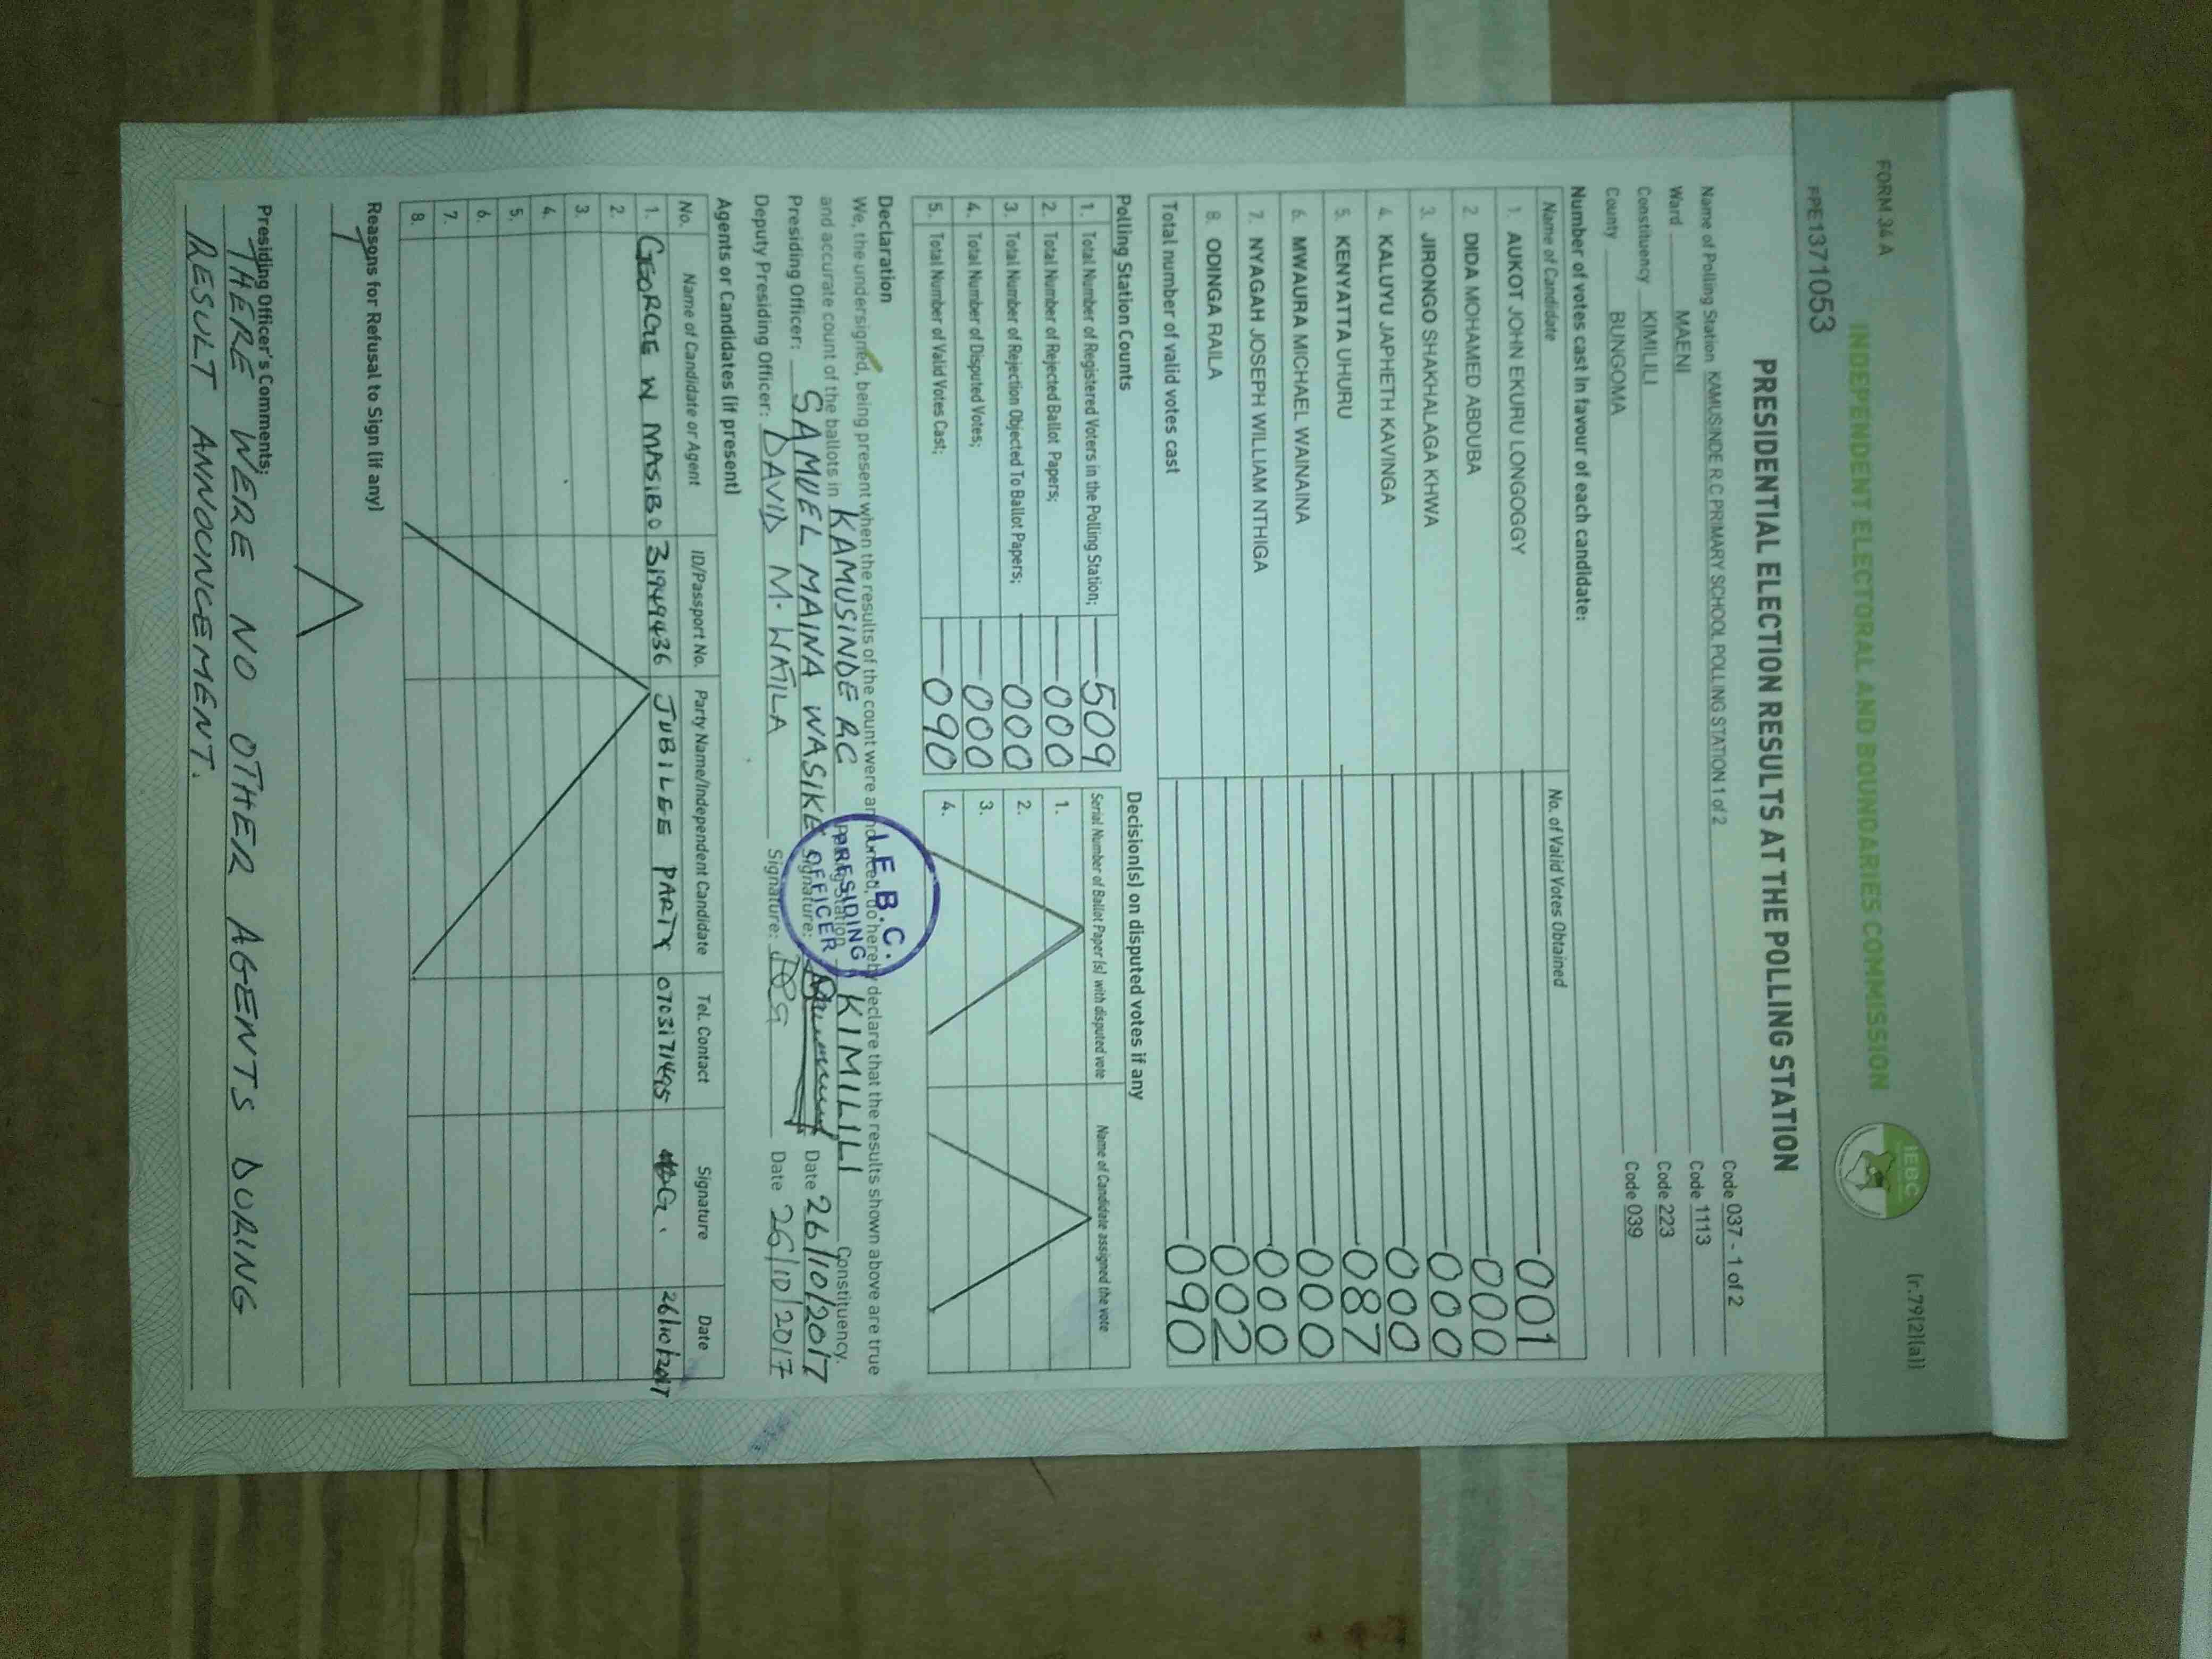 FORM 34 A
(r.79(2)(a))
INDEPENDENT ELECTORAL AND BOUNDARIES COMMISSION
IEBC
PPE1371053
PRESIDENTIAL ELECTION RESULTS AT THE POLLING STATION
Name of Polling Station KAMUSINDE R.C PRIMARY SCHOOL POLLING STATION 1 of 2 Code 037 - 1 of 2
Ward MAENI Code 1113
Constituency KIMILILI Code 223
County BUNGOMA Code 039
Number of votes cast in favour of each candidate:
Name of Candidate No. of Valid Votes Obtained
1. AUKOT JOHN EKURU LONGOGGY 001
2. DIDA MOHAMED ABDUBA 000
3. JIRONGO SHAKHALAGA KHWA 000
4. KALUYU JAPHETH KAVINGA 000
5. KENYATTA UHURU 087
6. MWAURA MICHAEL WAINAINA 000
7. NYAGAH JOSEPH WILLIAM NTHIGA 000
8. ODINGA RAILA 002
Total number of valid votes cast 090
Polling Station Counts
1. Total Number of Registered Voters in the Polling Station; 509
2. Total Number of Rejected Ballot Papers; 000
3. Total Number of Rejection Objected To Ballot Papers; 000
4. Total Number of Disputed Votes; 000
5. Total Number of Valid Votes Cast; 090
Decision(s) on disputed votes if any
Serial Number of Ballot Paper (s) with disputed vote Name of Candidate assigned the vote
1.
2.
3.
4.
Declaration
We, the undersigned, being present when the results of the count were announced, do hereby declare that the results shown above are true
and accurate count of the ballots in KAMUSINDE RC Polling Station KIMILILI Constituency.
Presiding Officer: SAMUEL MAINA WASIKE Signature: Date 26/10/2017
Deputy Presiding Officer: DAVID M. WATILA Signature: Date 26/10/2017
I.E.B.C.
PRESIDING
OFFICER
Agents or Candidates (if present)
No. Name of Candidate or Agent ID/Passport No. Party Name/Independent Candidate Tel. Contact Signature Date
1. GEORGE W MASIBO 31949436 JUBILEE PARTY 0703171495 26/10/2017
2.
3.
4.
5.
6.
7.
8.
Reasons for Refusal to Sign (if any)
Presiding Officer's Comments;
THERE WERE NO OTHER AGENTS DURING
RESULT ANNOUNCEMENT.